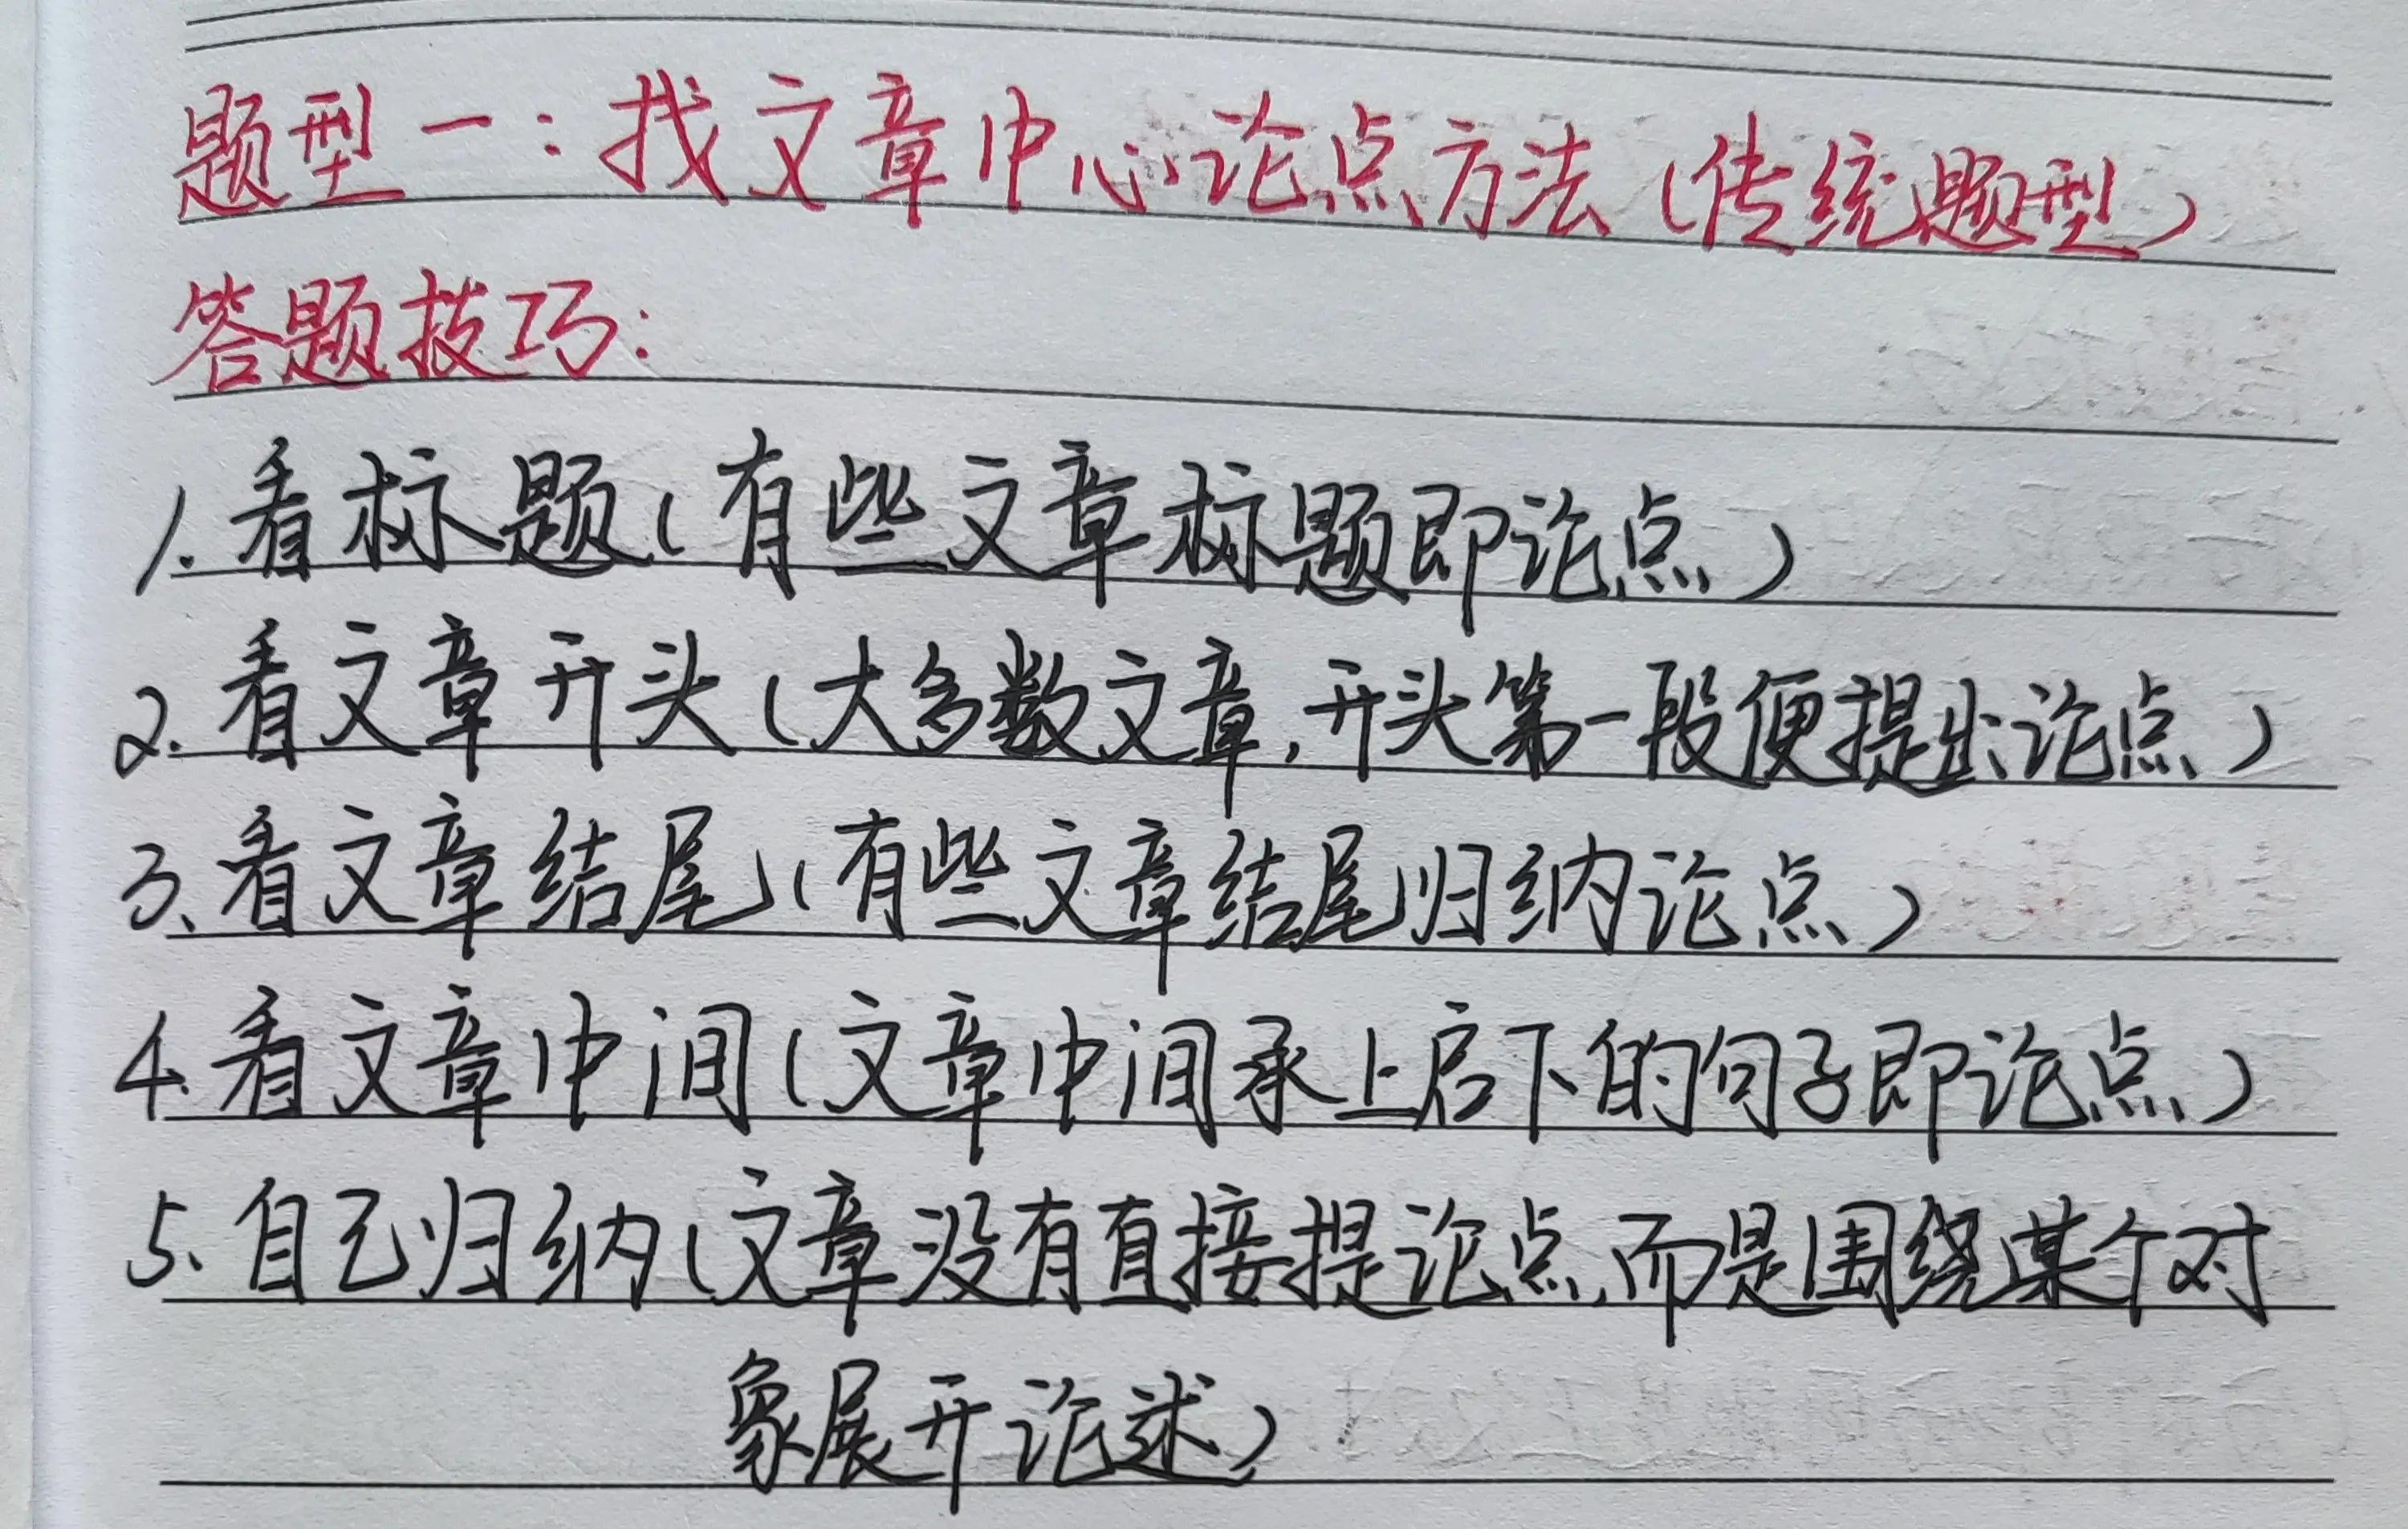 题型一:找文章中心论点方法(传统题型)
答题技巧:
1.看标题(有些文章标题即论点)
2.看文章开头(大多数文章,开头第一段便提出论点)
3、看文章结尾(有些文章结尾归纳论点)
4.看文章中间(文章中间承上启下的句子即论点)
5.自己归纳(文章没有直接提论点,而是围绕某个对
象展开论述)